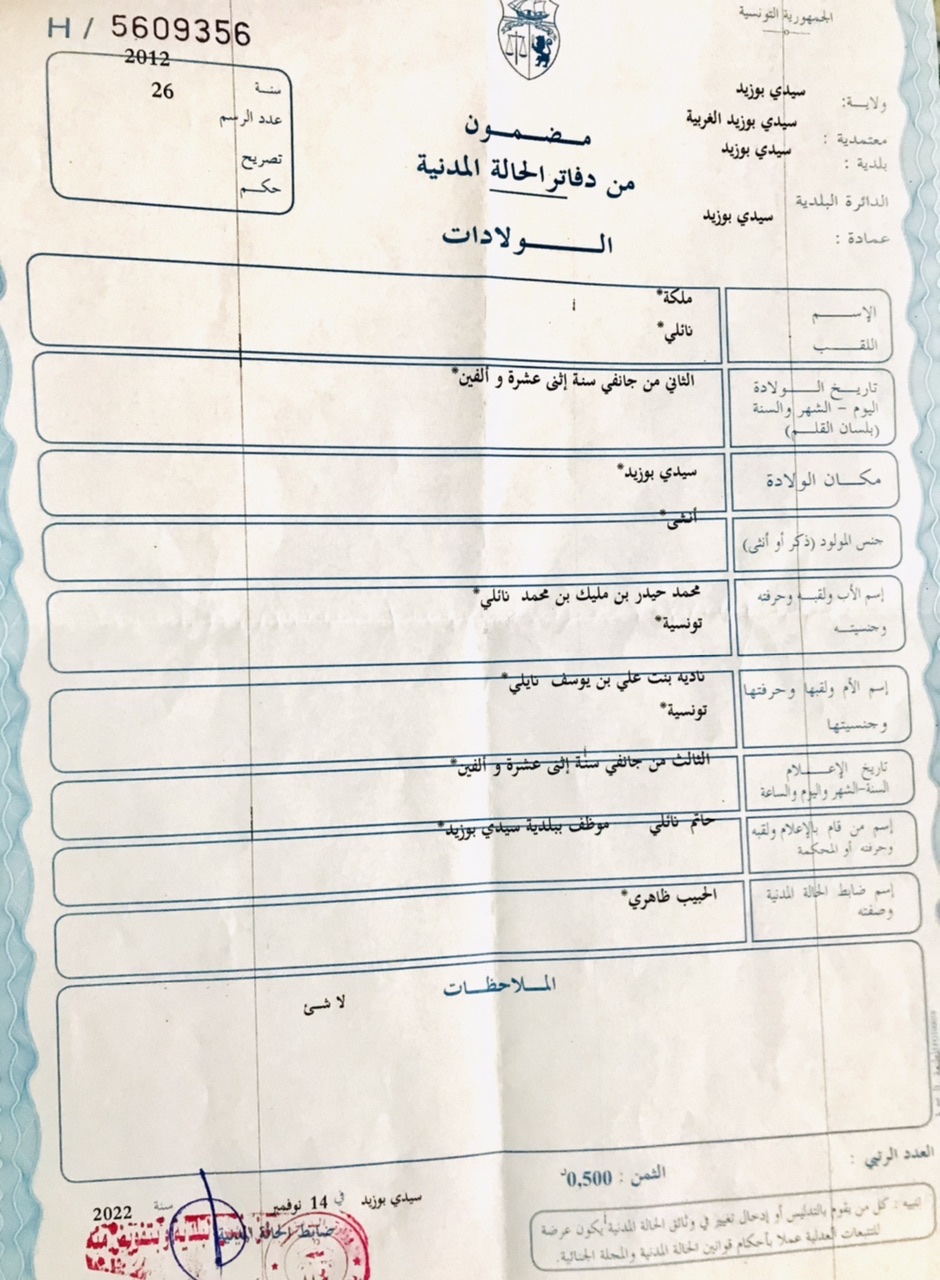 H / 5609356
الجمهورية التونسية
2012
سنة
26
عدد الرسم
تصريح
حكم
مضمون
من دفاتر الحالة المدنية
الولادات
ولاية: سيدي بوزيد
معتمدية : سيدي بوزيد الغربية
بلدية : سيدي بوزيد
الدائرة البلدية
عمادة : سيدي بوزيد
الإسم ملكة*
اللقب نائلي*
تاريخ الولادة الثاني من جانفي سنة إثنى عشرة و ألفين*
اليوم - الشهر والسنة
(بلسان القلم)
مكان الولادة سيدي بوزيد*
جنس المولود (ذكر أو أنثى) أنثى*
إسم الأب ولقبه وحرفته محمد حيدر بن مليك بن محمد نائلي*
وجنسيته تونسية*
إسم الأم ولقبها وحرفتها نادية بنت علي بن يوسف نايلي*
وجنسيتها تونسية*
تاريخ الإعلام الثالث من جانفي سنة إثنى عشرة و ألفين*
السنة-الشهر واليوم والساعة
إسم من قام بالإعلام ولقبه حاتم نائلي موظف ببلدية سيدي بوزيد*
وحرفته أو المحكمة
إسم ضابط الحالة المدنية الحبيب ظاهري*
وصفته
الملاحظات
لا شئ
العدد الرتبي :
الثمن : 0,500د
سيدي بوزيد في 14 نوفمبر سنة 2022
ضابط الحالة المدنية
تنبيه : كل من يقوم بالتدليس أو إدخال تغيير في وثائق الحالة المدنية يكون عرضة
للتتبعات العدلية عملا بأحكام قوانين الحالة المدنية والمجلة الجنائية.